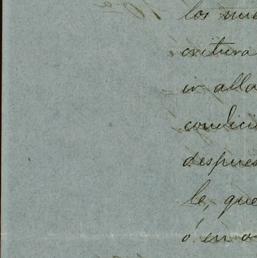 los nue
critura
ir alla
condici
despues
le, que
ó en a